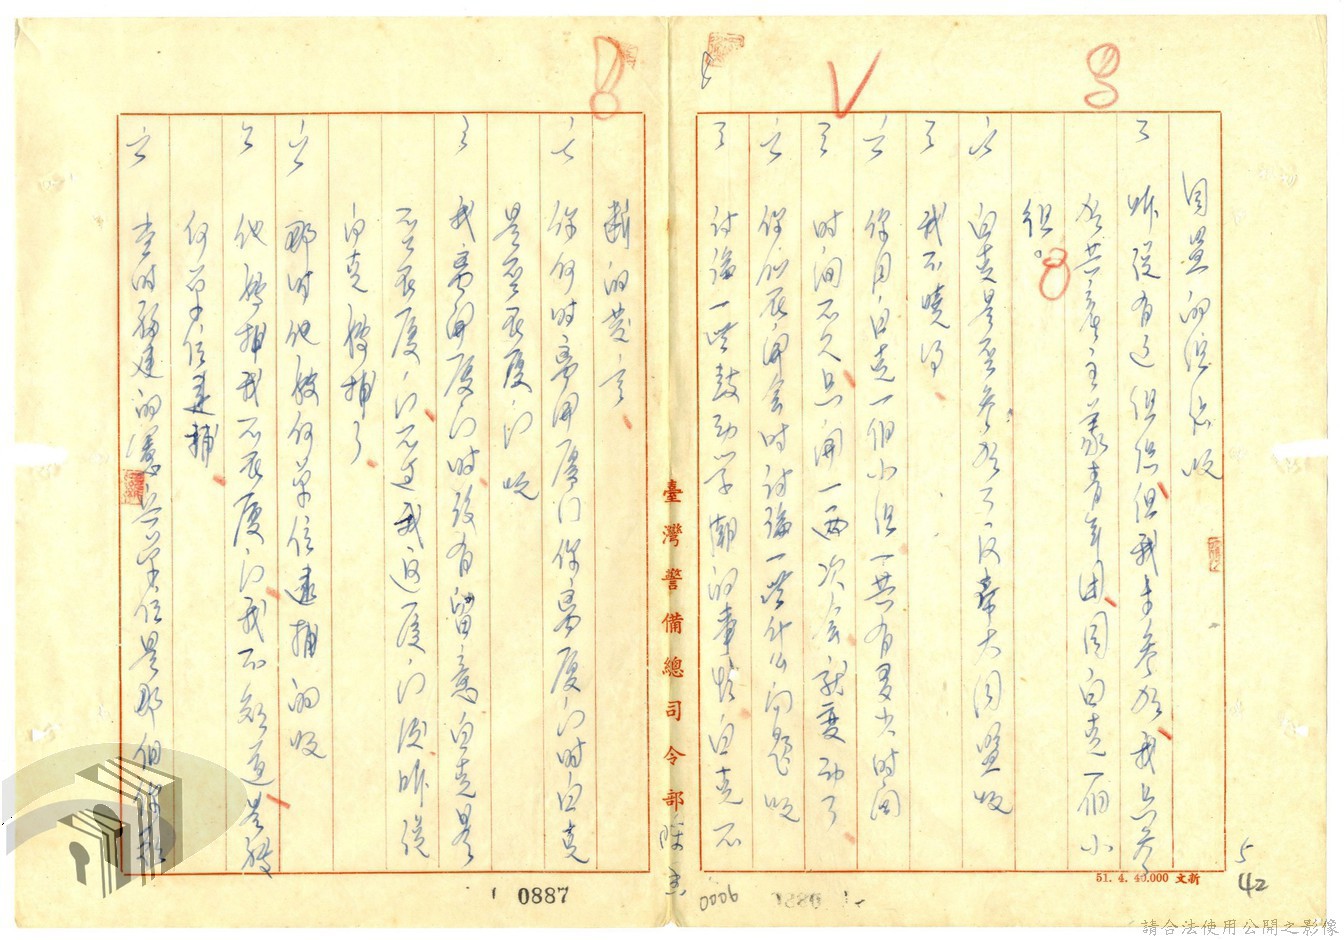 同盟的組織呢
答 昨說有這組織但我未參加我只參
加共產主義青年團同白克一個小
組。
問 白克是否參加了反帝大同盟呢
答 我不曉得
問 你同白克一個小組一共有多少時間
答 時間不久只開一兩次會就變動了
問 你們在開會時討論一些什么問題呢
答 討論一些鼓動學潮的事情白克不
斷的發言
問 你何時離開厦门你離厦门時白克
是否在厦门呢
答 我離開厦门時沒有留意白克是
否在厦门不过我返厦门後听說
白克被捕了
問 那時他被何單位逮捕的呢
答 他被捕我不在厦门我不知道是被
何單位逮捕
問 當時福建的憲兵單位是那個
臺灣警備總司令部
51. 4. 40.000 文新
5
42
0006
0887
請合法使用公開之影像